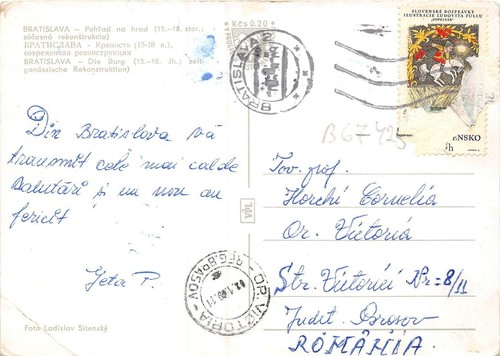 BRATISLAVA – Pohľad na hrad (15.–18. stor.;
súčasná rekonštrukcia)
БРАТИСЛАВА – Крепость (15-18 в.),
современная реконструкция
BRATISLAVA – Die Burg (15.–18. Jh.; zeit-
genössische Rekonstruktion)
Kčs 0.20
BRATISLAVA 2
SLOVENSKÉ ROZPRÁVKY
ILUSTRÁCIE ĽUDOVÍTA FULLU
B67425
Din Bratislava vă
transmit cele mai calde
Salutări și un nou an
fericit
Geta P.
VšL
Tov. prof.
Florchi Cornelia
Or. Victoria
Str. Victoriei Nr=8/11
Judit. Brasov
ROMÂNIA.
OR. VICTORIA
REG. BRAȘOV
Foto Ladislav Sitenský